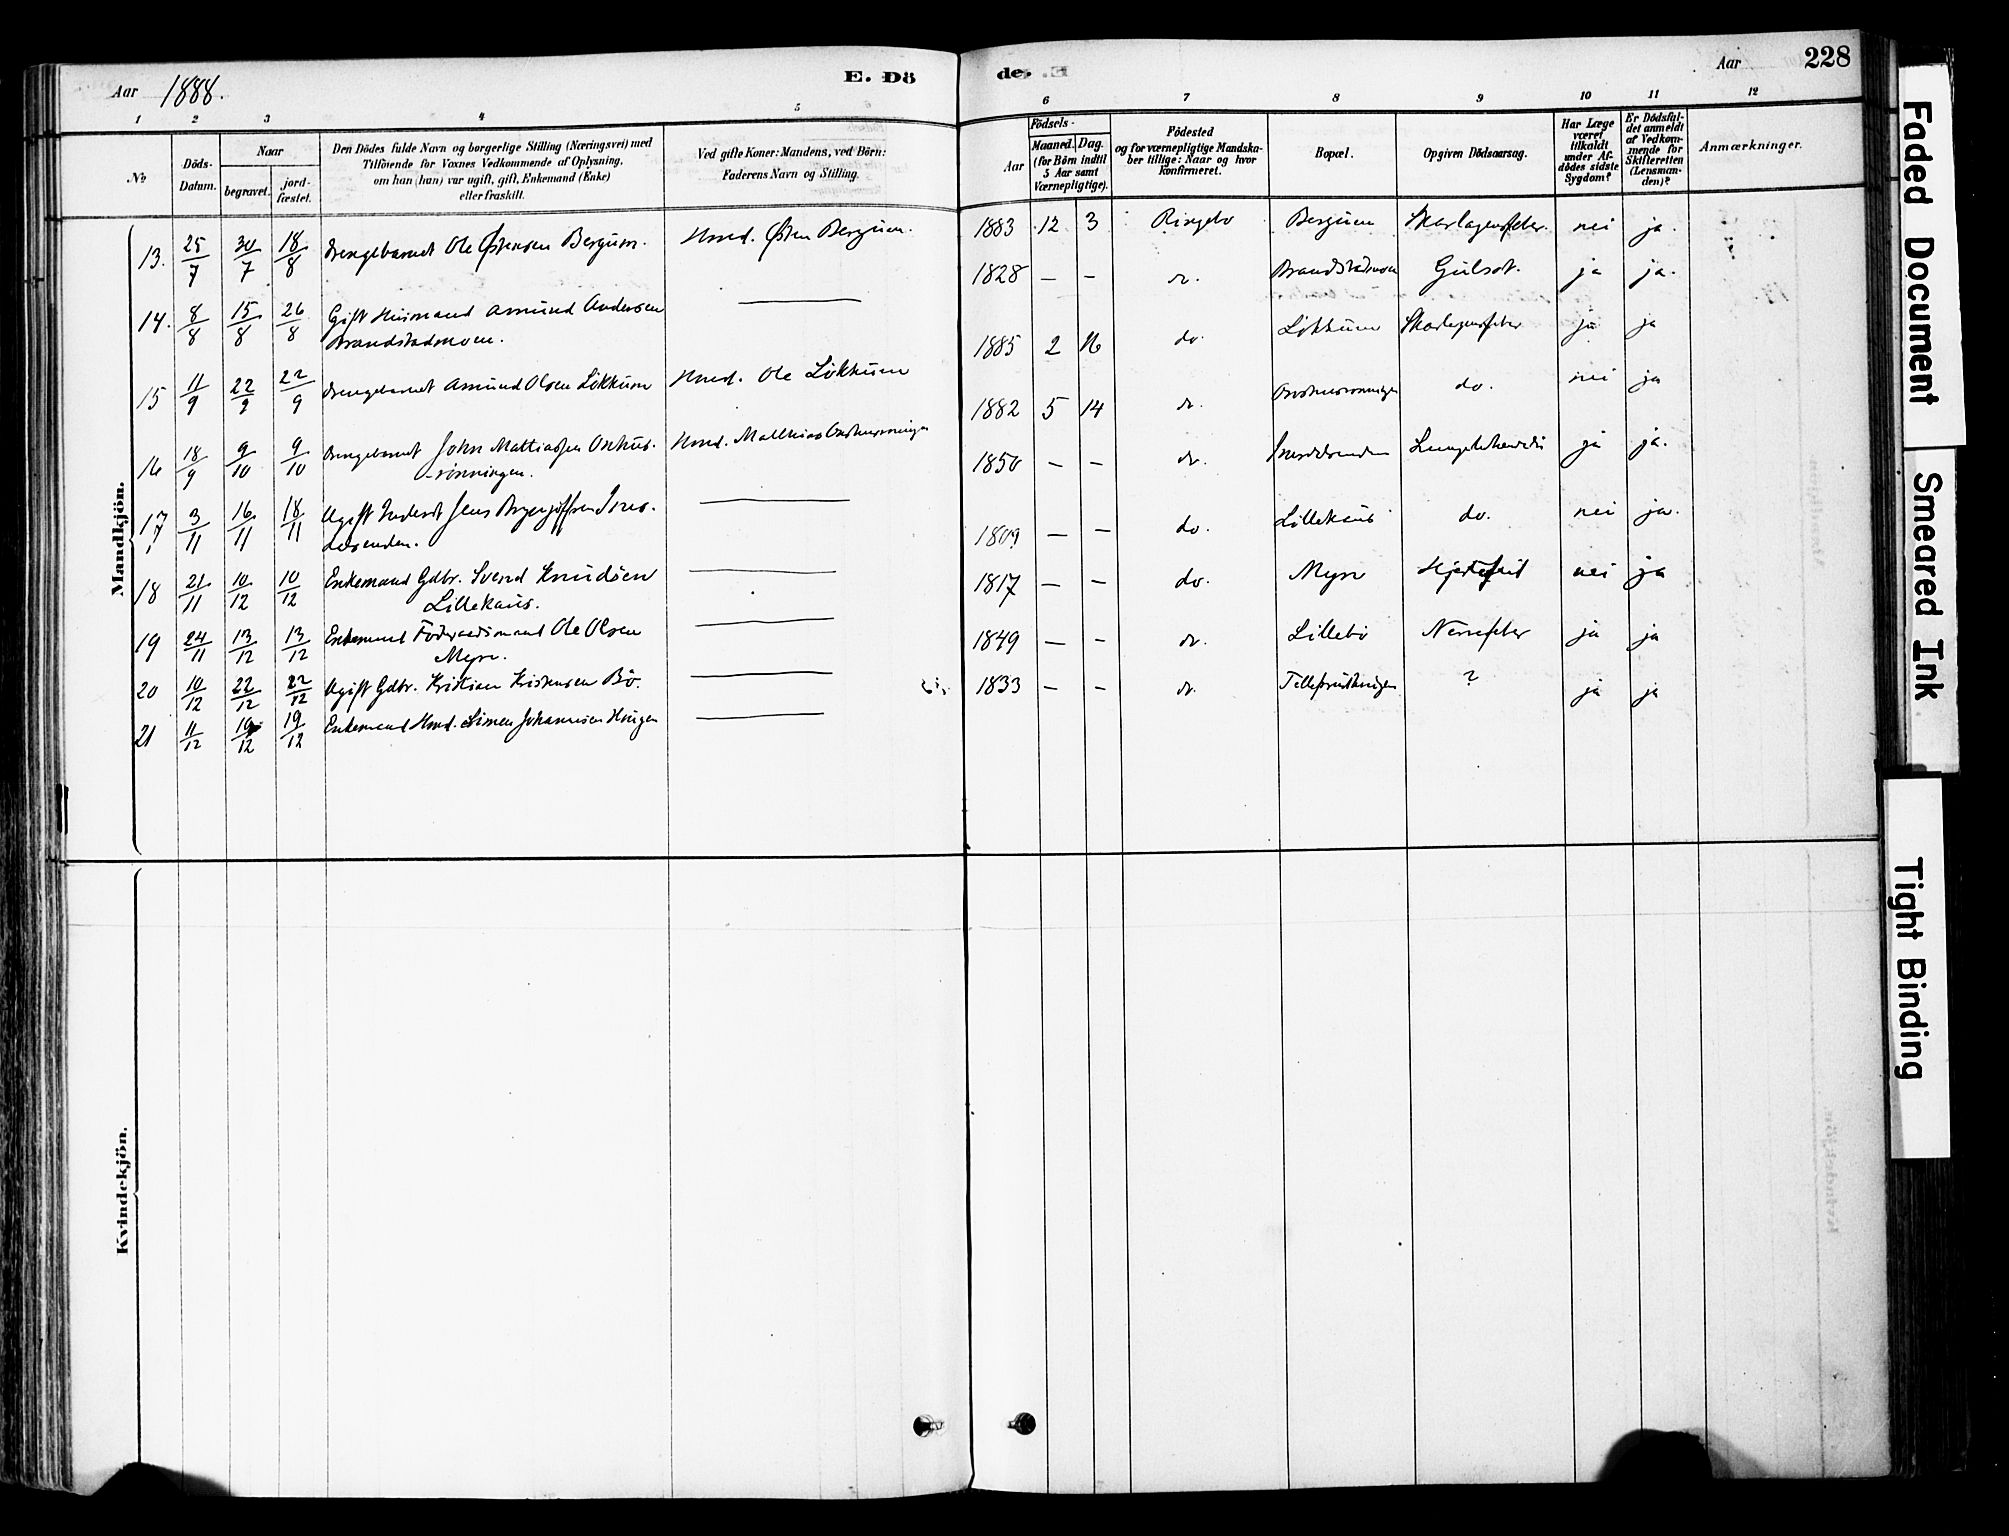 Aar 1888.
E. Dö
de.
Aar
228
1 2 3 4 5
6 7 8 9 10 11 12
№
Döds-Datum.
Naar
begravet.
jord-fæstet.
Den Dödes fulde Navn og borgerlige Stilling (Næringsvei) med
Tilföiende for Voxnes Vedkommende af Oplysning,
om han (hun) var ugift, gift, Enkemand (Enke)
eller fraskilt.
Ved gifte Koner: Mandens, ved Börn:
Faderens Navn og Stilling.
Födsels-
Aar
Maaned. Dag.
(for Börn indtil
5 Aar samt
Værnepligtige).
Födested
og for værnepligtige Mandska-
ber tillige: Naar og hvor
konfirmeret.
Bopæl.
Opgiven Dödsaarsag.
Har Læge
været
tilkaldt
under Af-
dödes sidste
Sygdom?
Er Dödsfal-
det anmeldt
af Vedkom-
mende for
Skifteretten
(Lensman-
den)?
Anmærkninger.
Mandkjön.
13. 25/7 30/7 18/8 Drengebarnet Ole Østensen Bergum. Hmd. Østen Bergum.
14. 8/8 15/8 26/8 Gift Husmand Amund Andersen
Brandstadmoen.
15 11/9 22/9 22/9 Drengebarnet Amund Olsen Løkkum Hmd. Ole Løkkum
16 18/9 9/10 9/10 Drengebarnet John Mattiassen Onhus-
rønningen. Hmd. Mathias
17 3/11 16/11 18/11 Ugift Jens
18 21/11 10/12 10/12 Enkemand Gdbr. Svend Knudsen
Lillekaus.
19 24/11 13/12 13/12 Enkemand Föderaadsmand Ole Olsen
Myre.
20 10/12 22/12 22/12 Ugift Gdbr. Kristian Kristensen Bö.
21 11/12 19/12 19/12 Enkemand Hmd. Simen Johannesen Haugen
1883 12 3 Ringebo Bergum Skarlagensfeber. nei ja.
1828 — - do. Brandstadmoen Gulsot. ja ja.
1885 2 16 do. Løkkum Skarlagensfeber ja ja
1882 5 14 do. do. nei ja
1850 — - do. ja ja.
1809 — - do. Lillekaus do. nei ja.
1817 — - do. Myre Hjertefeil nei ja
1849 — - do. Lillebö Nervefeber ja ja
1833 — - do. ? ja ja
Kvindekjön.
Faded Document
Smeared Ink
Tight Binding